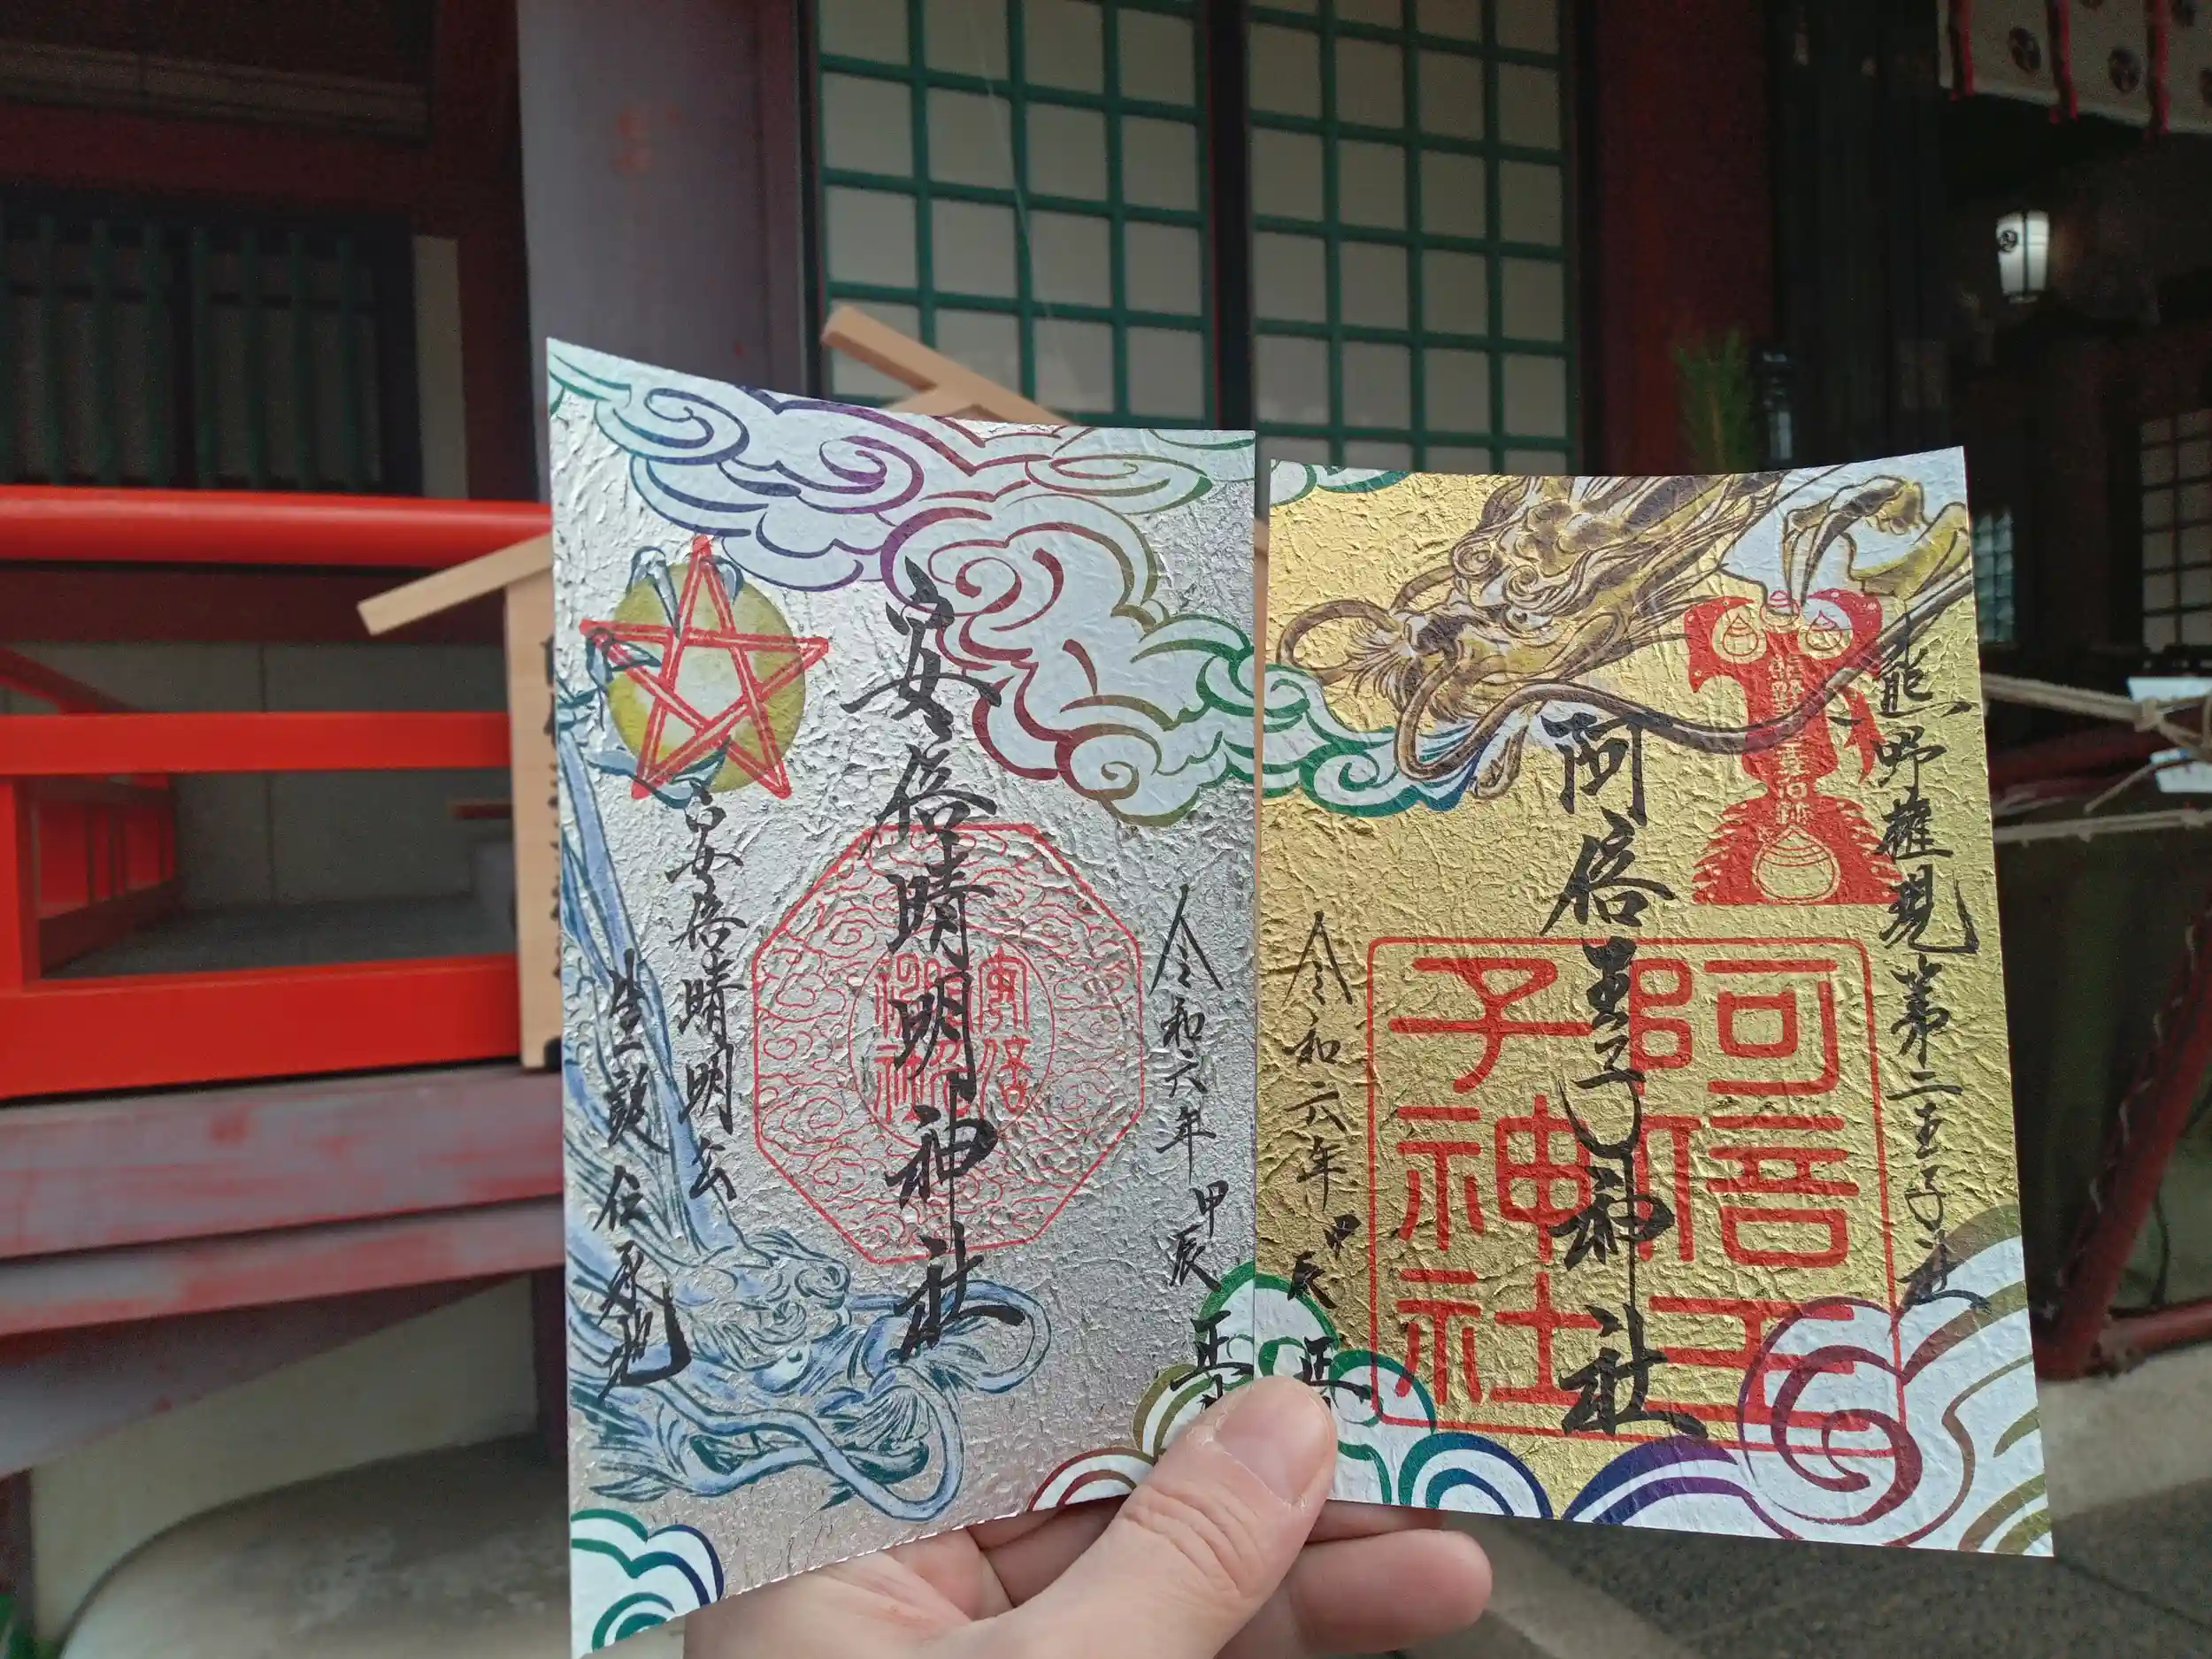 熊野権現第二王子
阿倍王子神社
阿倍王子神社
令和六年
甲辰
正
令和六年
甲辰
正
安倍晴明神社
安倍晴明公
生誕伝承地